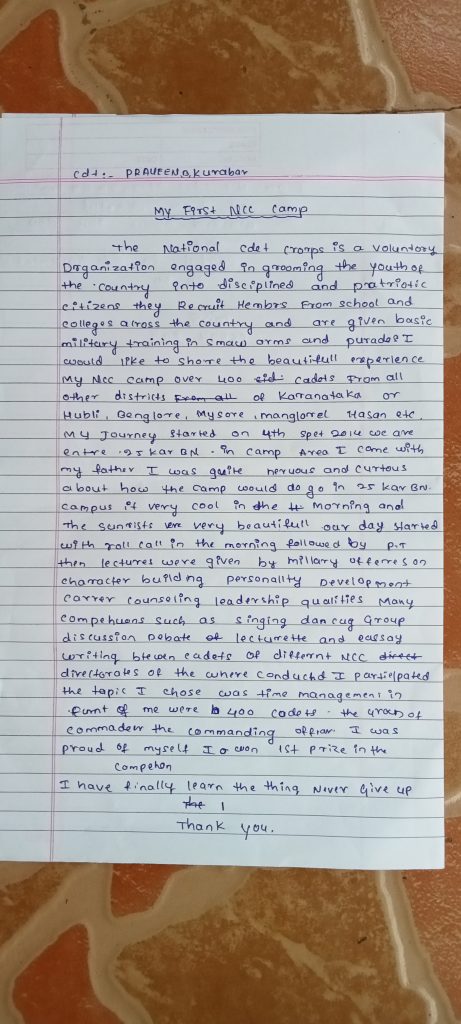 cdt:- PRAVEEN.D.Kurabar
My First Ncc Camp
The National cdet croorps is a voluntory
Drganization engaged in grooming the youth of
the country into disciplined and patriotic
citizens they Recruit Hembrs From school and
colleges across the country and are given basic
military training in smaw arms and purades I
would like to shore the beautifull experience
My Ncc camp over 400 cadets From all
other districts of Karranataka or
Hubli, Benglore, Mysore, manglorel Hasan etc.
My Journey started on 4th spet 2014 we are
entre 25 kar BN. in camp Area I came with
my father I was quite nervous and curtous
about how the camp would do go in 25 kar BN.
campus it very cool in the morning and
The sunrists were very beautifull our day started
with roll call in the morning followed by P.T
then lectures were given by millary offerres on
character building personallty Development
carrer counseling leadership qualities Many
compehuons such as singing dancug Group
discussion Debate lecturette and eassay
writing btewen cadets of differnt NCC
directorates of the where conductd I participated
the topic I chose was time management in
Furnt of me were 400 cadets. the Group of
commadeur the commanding officer I was
proud of myself I won 1st prize in the
compehon
I have finally learn the thing Never Give up
Thank you.